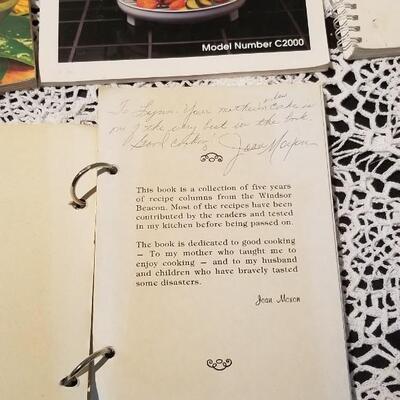 Model Number C2000
law
To Lynn - Your mother in Cake is
one of the very best in the book.
Good cooking, Joan Moxon
This book is a collection of five years
of recipe columns from the Windsor
Beacon. Most of the recipes have been
contributed by the readers and tested
in my kitchen before being passed on.
The book is dedicated to good cooking
— To my mother who taught me to
enjoy cooking — and to my husband
and children who have bravely tasted
some disasters.
Joan Moxon